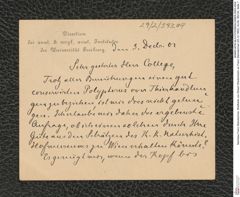 29/2/392708
Direction
des anat. & vergl. anat. Instituts
der Universität Freiburg.
den 3. Decbr. 01
Sehr geehrter Herr College,
Trotz aller Bemühungen einen gut
conservirten Polypterus von Thierhändlern
zu beziehen ist mir dies nicht gelungen.
Ich erlaube mir daher die ergebenste
Anfrage, ob ich einen solchen durch Ihre
Güte aus den Schätzen des K. K. Naturhist.
Hofmuseums zu Wien erhalten könnte?
Es genügt mir, wenn der Kopf bis